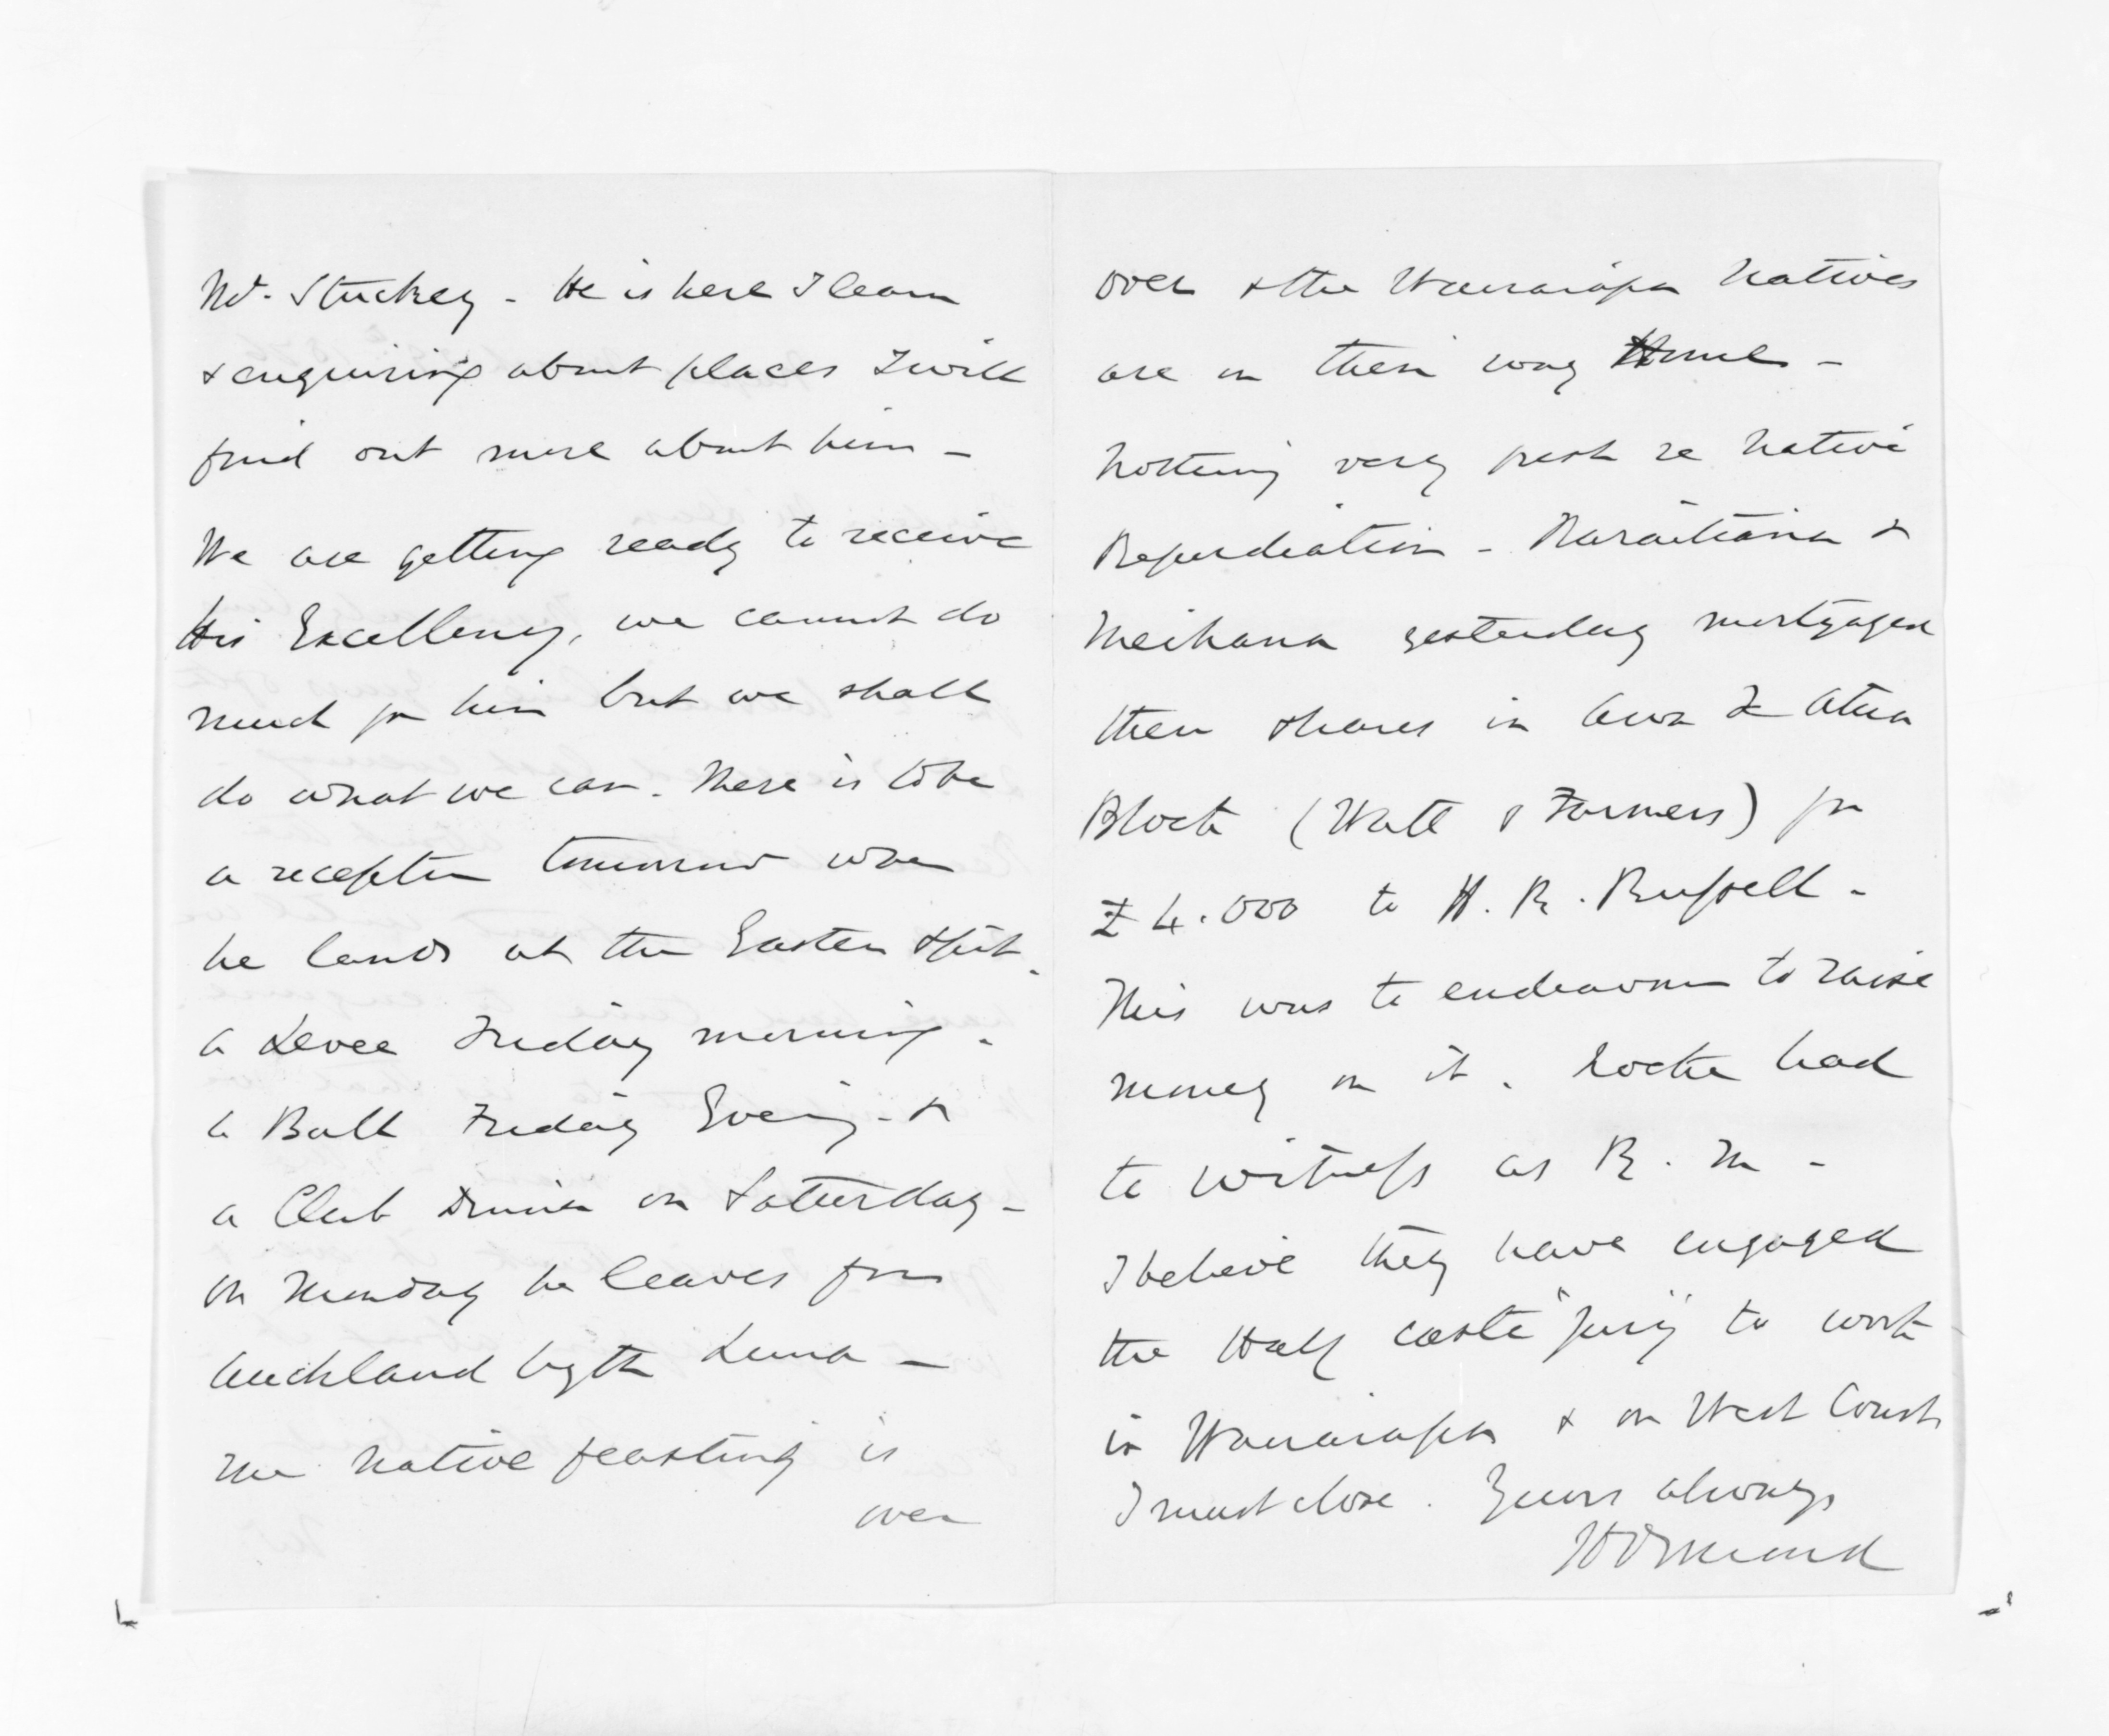 Mr. Stuckey - He is here I learn
& enquiring about places I will
find out more about him -
We are getting ready to receive
His Excellency, we cannot do
much for him but we shall
do what we can. There is to be
a reception tomorrow when
he lands at the Eastern Spit.
a Levee Friday morning.
a Ball Friday Evening - &
a Club Dinner on Saturday -
On Monday he leaves for
Auckland by the Luna -
The native feasting is
over
over & the Wairarapa Natives
are on their way Home -
Nothing very fresh re Native
Repudiation - Karaitiana &
Meihana yesterday mortgaged
their shares in Awa o te Atua
Block (Watt & Farmers) for
£4.000 to H. R. Russell -
This was to endeavour to raise
money on it. Locke had
to witness as R. M -
I believe they have engaged
the Half caste "Jury" to work
in Wairarapa & on West Coast
I must close. Yours always
JDOrmond